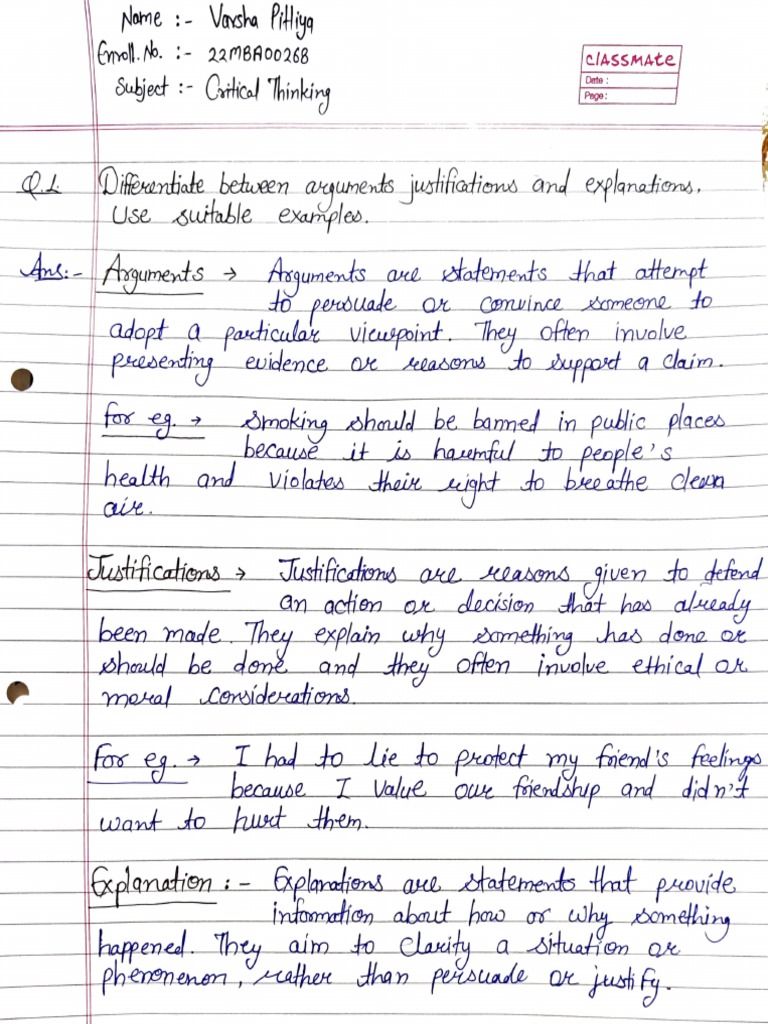 Name :- Varsha Pitliya
Enroll. No. :- 22MBA00268
Subject :- Critical Thinking
classmate
Date :
Page :
Q.1. Differentiate between arguments justifications and explanations.
Use suitable examples.
Ans:- Arguments → Arguments are statements that attempt
to persuade or convince someone to
adopt a particular viewpoint. They often involve
presenting evidence or reasons to support a claim.
for eg. → Smoking should be banned in public places
because it is harmful to people's
health and violates their right to breathe clean
air.
Justifications → Justifications are reasons given to defend
an action or decision that has already
been made. They explain why something has done or
should be done and they often involve ethical or
moral considerations.
for eg. → I had to lie to protect my friend's feelings
because I value our friendship and didn't
want to hurt them.
Explanation :- Explanations are statements that provide
information about how or why something
happened. They aim to clarity a situation or
phenonenon, rather than persuade or justify.